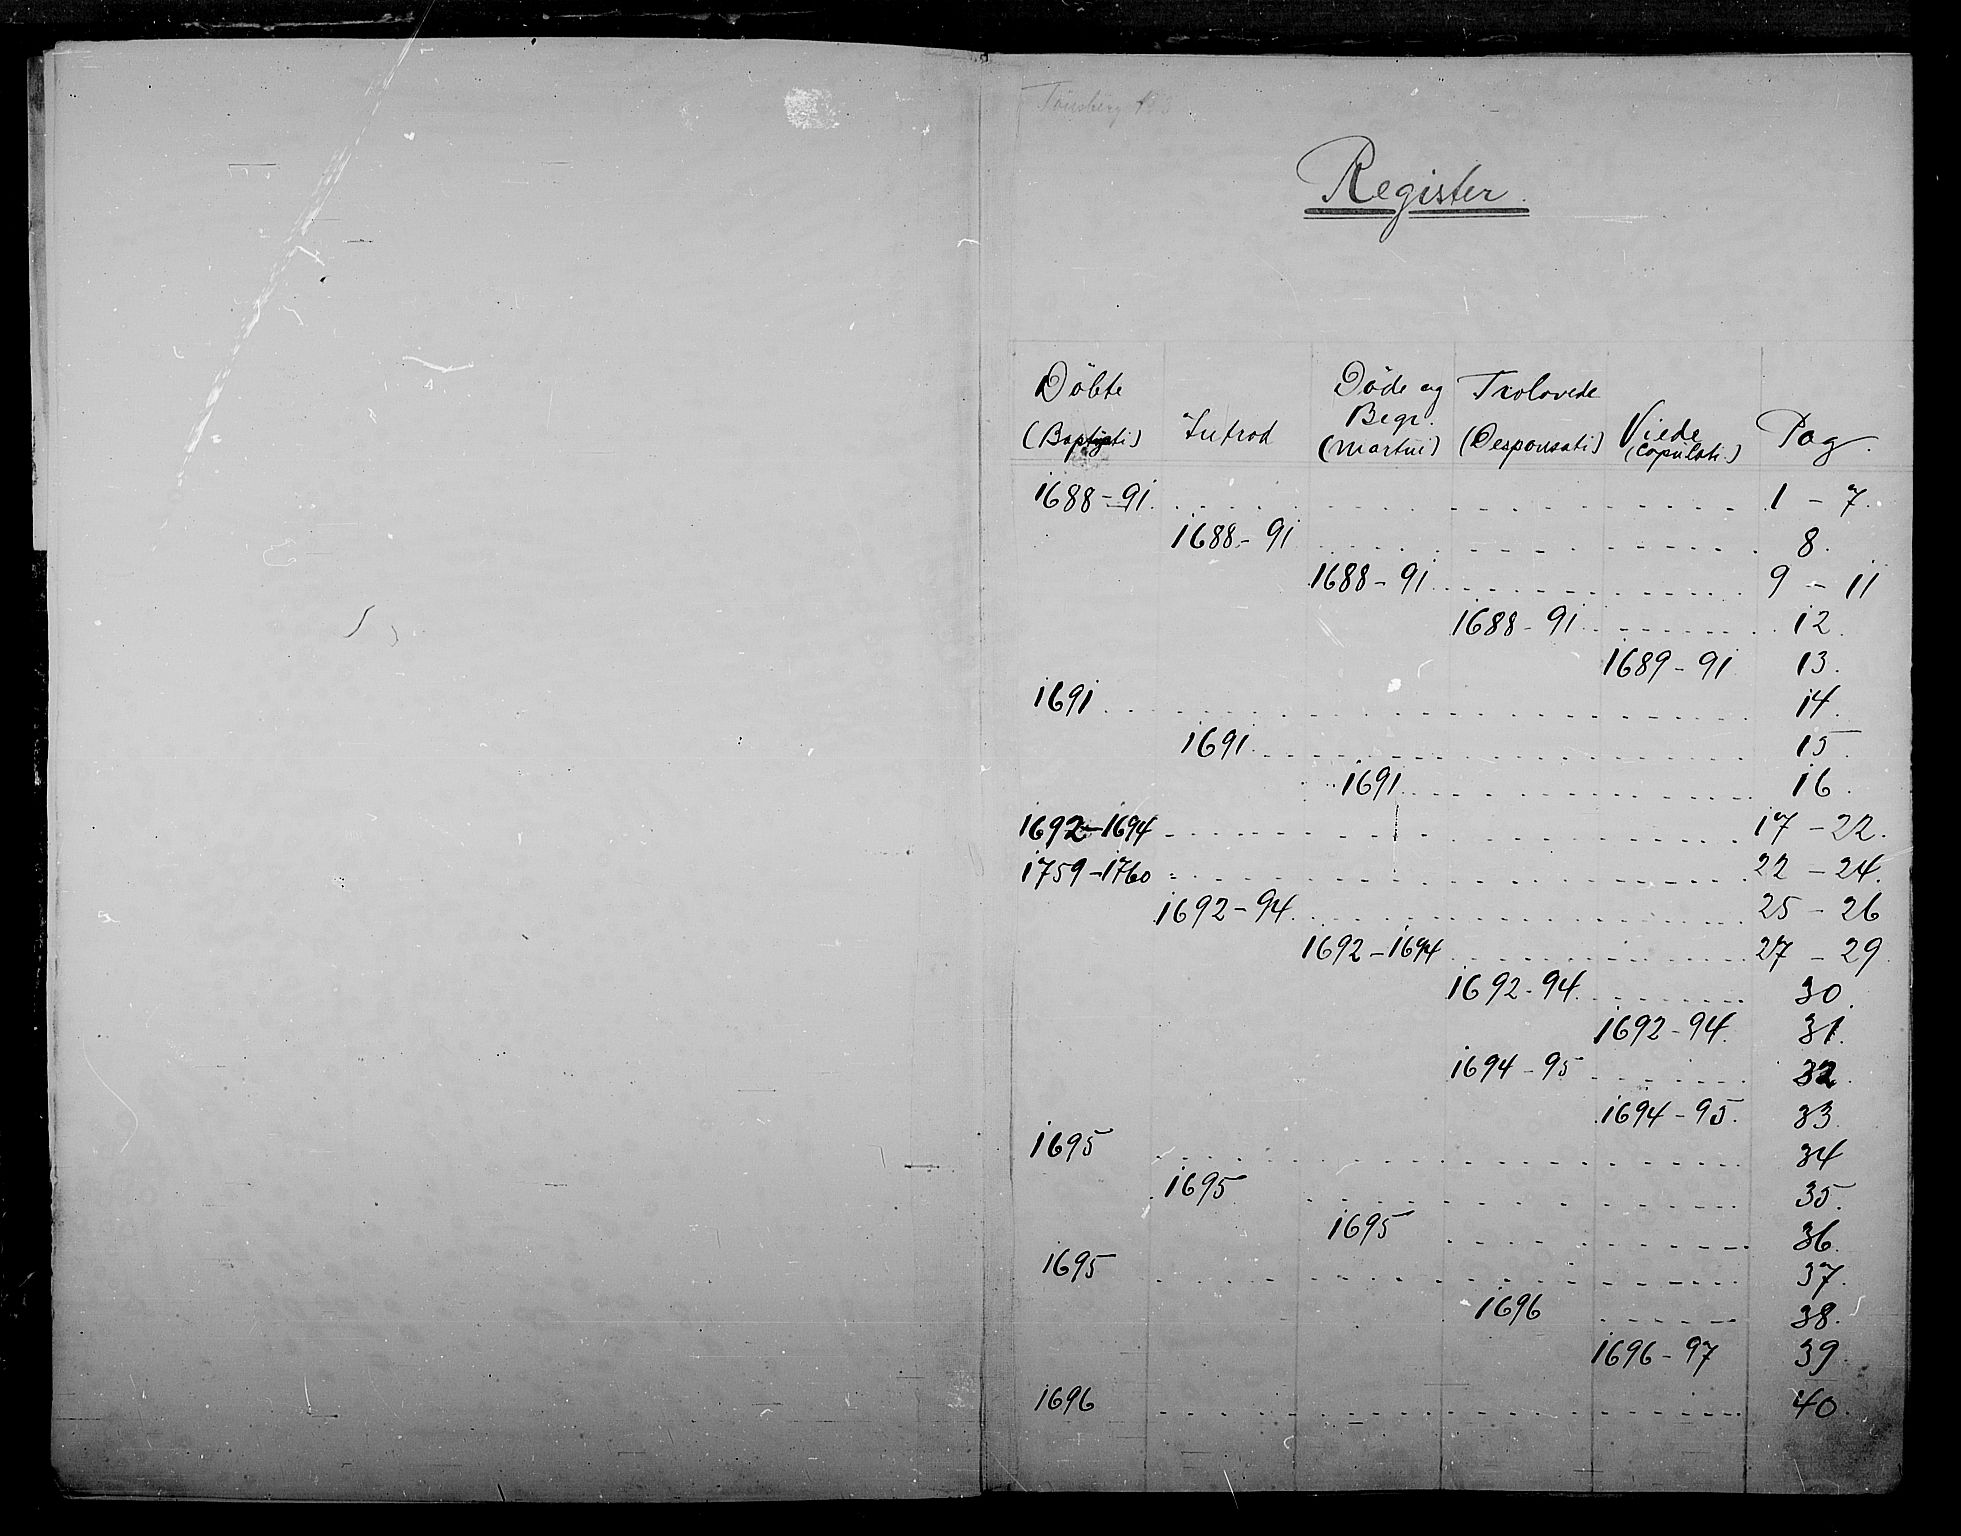 Tönsberg
Register.
Döbte (Baptisti) Introd Döde og Begr. (Mortui) Trolovede (Desponsati) Viede (Copulati) Pag.
1688-91. 1 - 7.
1688-91 8.
1688-91 9 - 11
1688-91 12.
1689-91 13.
1691 14.
1691 15
1691 16.
1692-1694 17 - 22.
1759-1760 22 - 24.
1692-94. 25 - 26
1692-1694 27 - 29
1692-94. 30.
1692-94. 31.
1694-95 32.
1694-95. 33.
1695 34
1695 35.
1695 36.
1695 37.
1696 38.
1696-97 39.
1696 40.